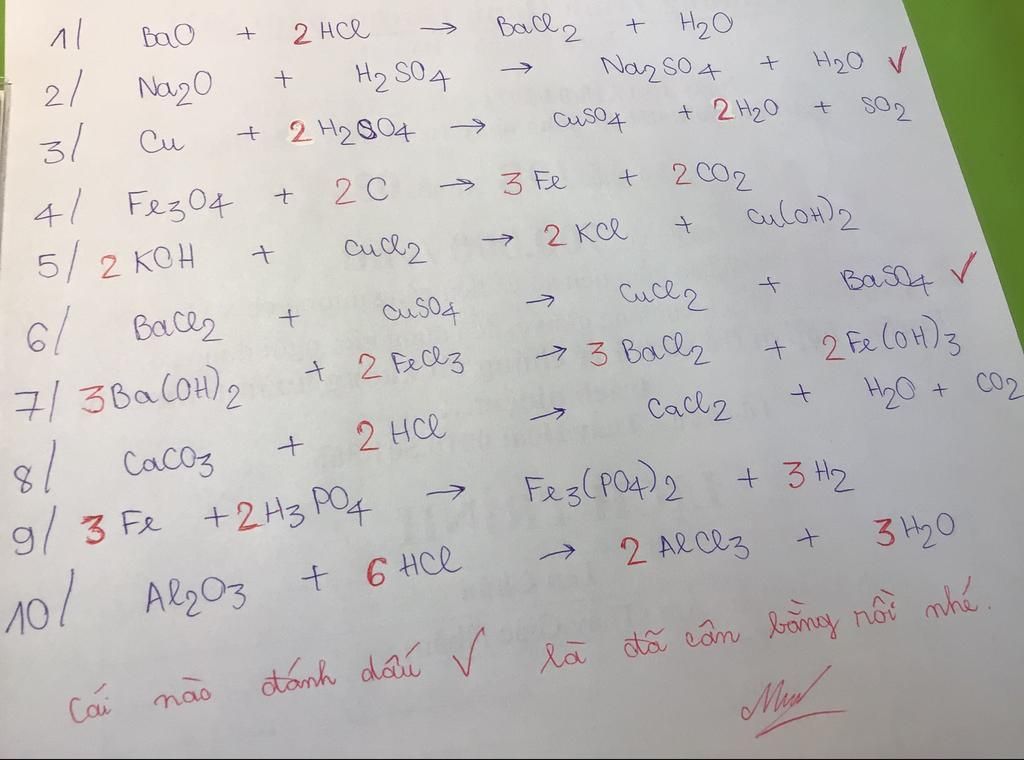 1/ BaO + 2HCl → BaCl2 + H2O
2/ Na2O + H2SO4 → Na2SO4 + H2O ✓
3/ Cu + 2H2SO4 → CuSO4 + 2H2O + SO2
4/ Fe3O4 + 2C → 3Fe + 2CO2
5/ 2KOH + CuCl2 → 2KCl + Cu(OH)2
6/ BaCl2 + CuSO4 → CuCl2 + BaSO4 ✓
7/ 3Ba(OH)2 + 2FeCl3 → 3BaCl2 + 2Fe(OH)3
8/ CaCO3 + 2HCl → CaCl2 + H2O + CO2
9/ 3Fe + 2H3PO4 → Fe3(PO4)2 + 3H2
10/ Al2O3 + 6HCl → 2AlCl3 + 3H2O
Cái nào đánh dấu ✓ là đã cân bằng rồi nhé.